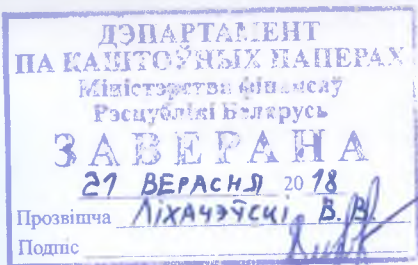 ДЭПАРТАМЕНТ
ПА КАШТОЎНЫХ ПАПЕРАХ
Міністэрства фінансаў
Рэспублікі Беларусь
ЗАВЕРАНА
21 ВЕРАСНЯ 2018
Прозвішча Ліхачэўскі В. В.
Подпіс